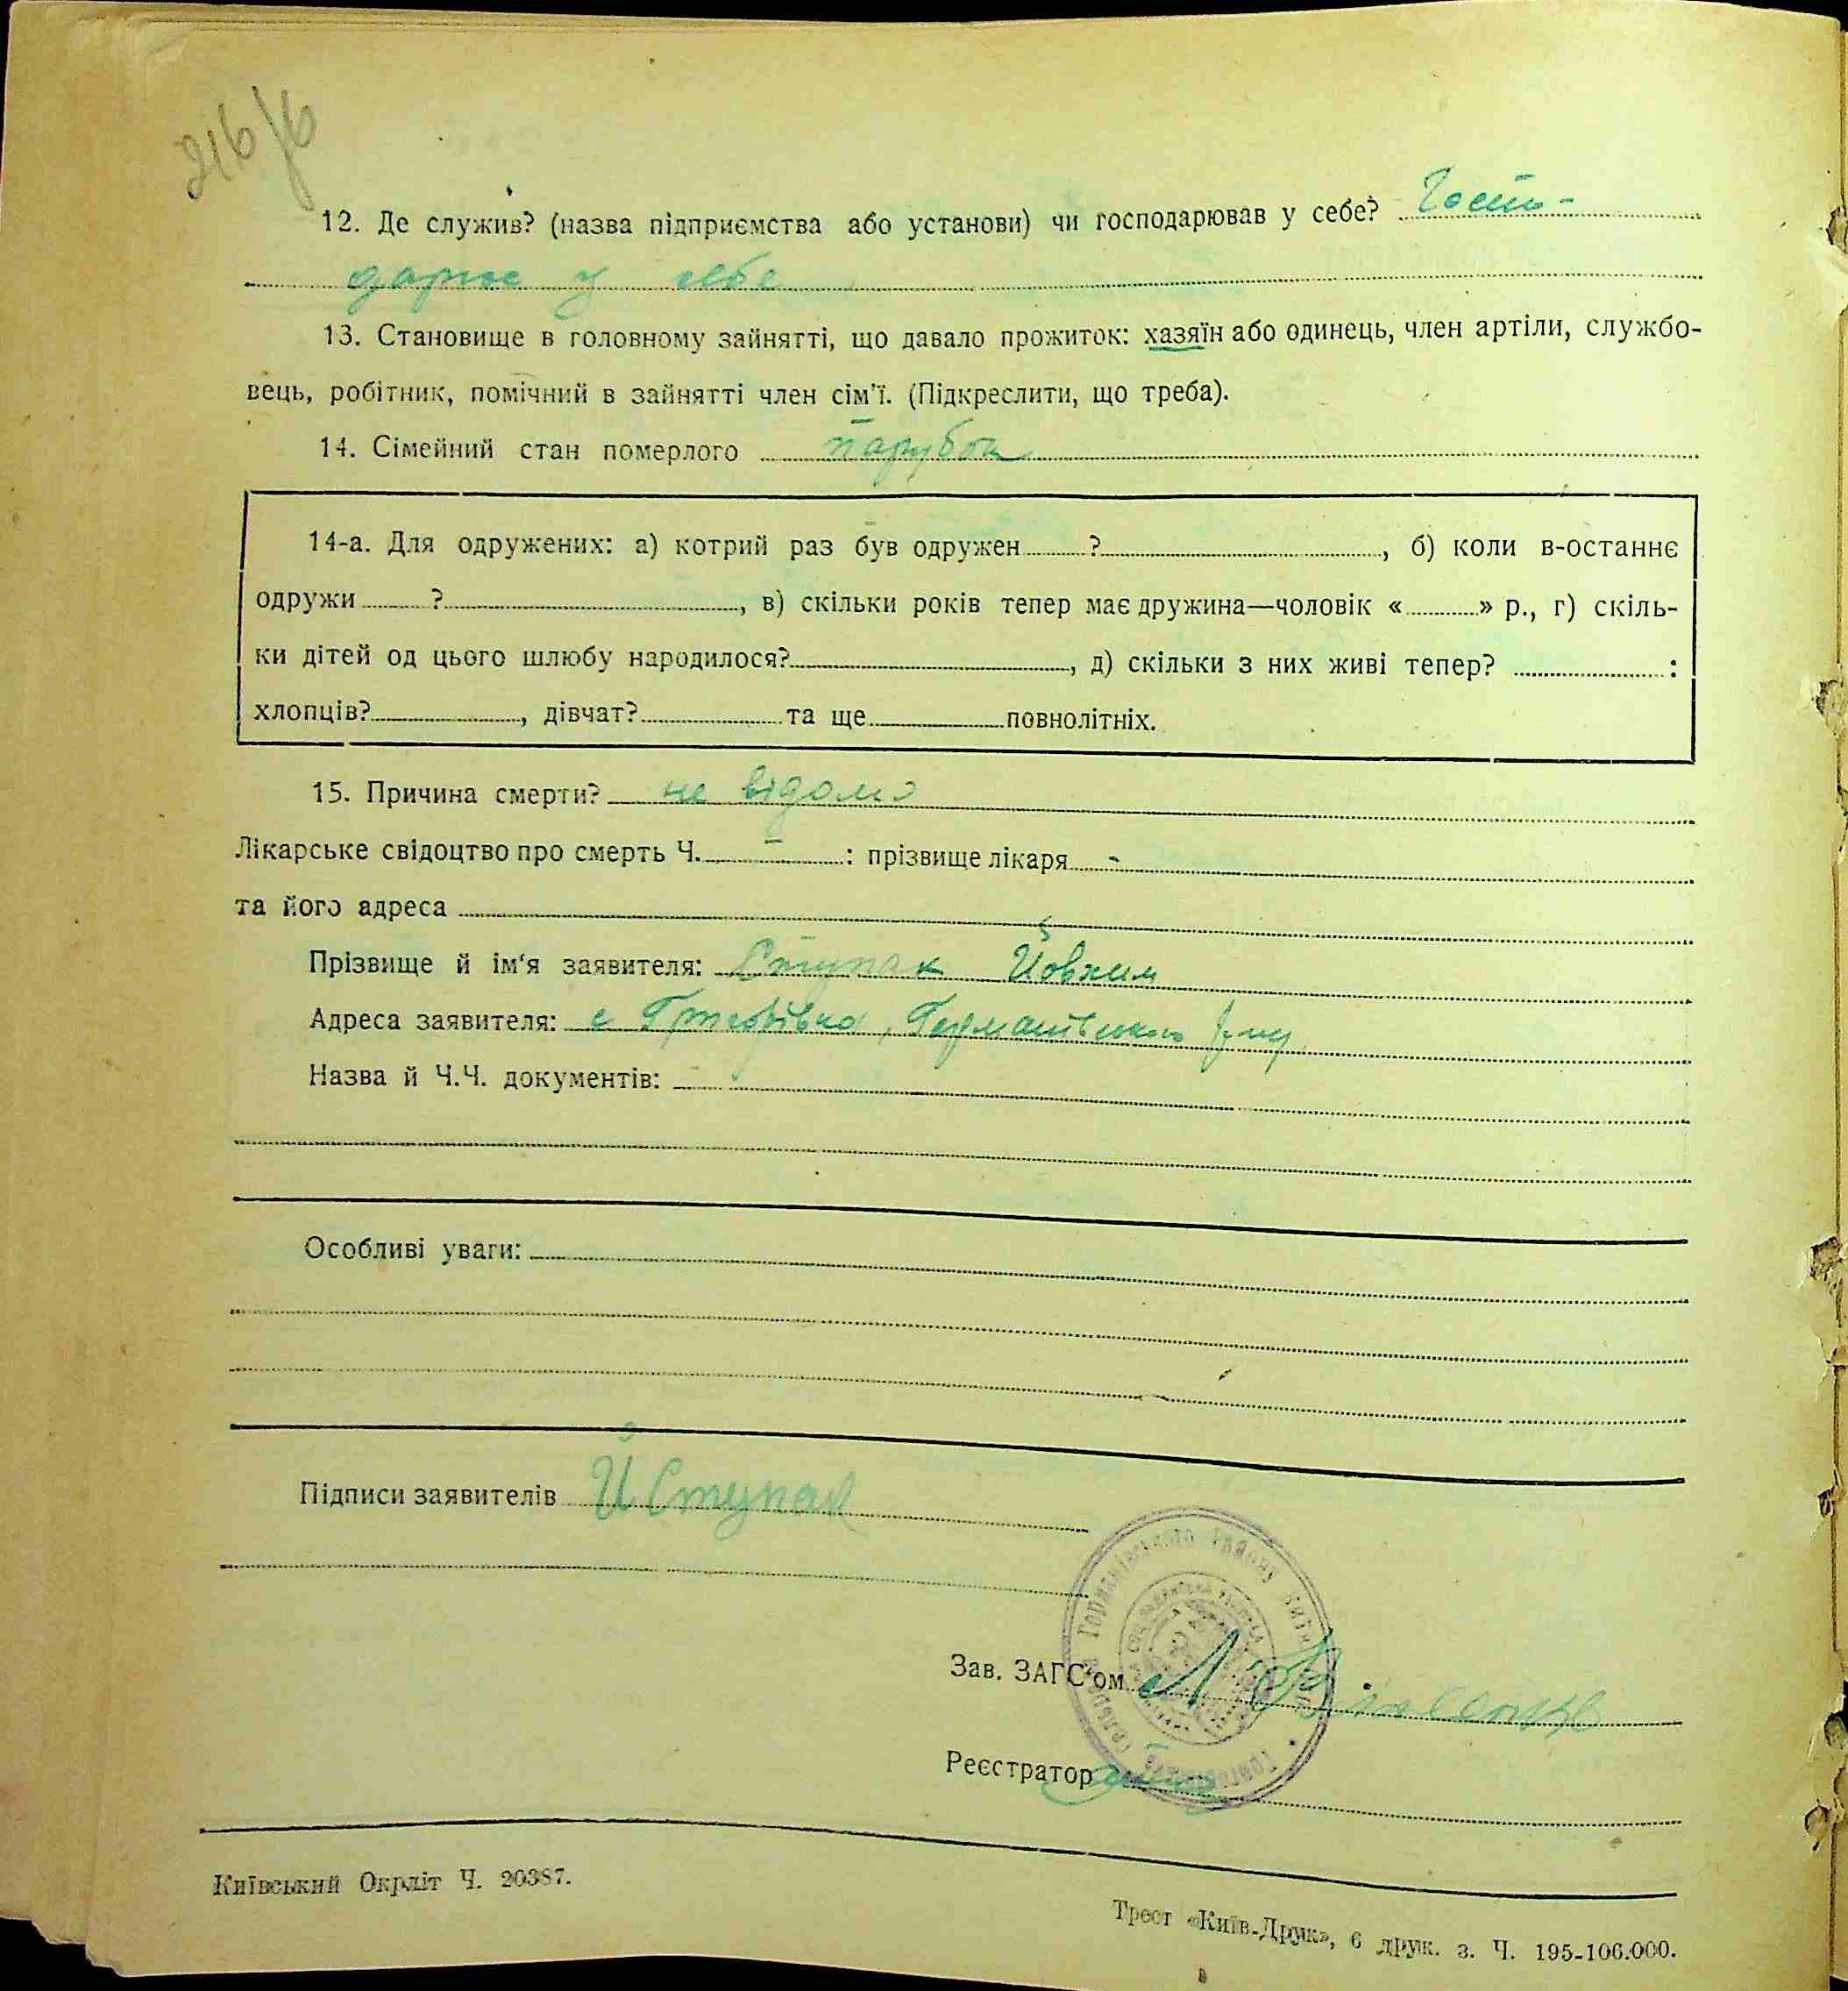 216/6
12. Де служив? (назва підприємства або установи) чи господарював у себе? Госпо-
дарює у себе
13. Становище в головному зайнятті, що давало прожиток: хазяїн або одинець, член артіли, службо-
вець, робітник, помічний в зайнятті член сім'ї. (Підкреслити, що треба).
14. Сімейний стан померлого парубок
14-а. Для одружених: а) котрий раз був одружен ? , б) коли в-останнє
одружи ? , в) скільки років тепер має дружина—чоловік « » р., г) скіль-
ки дітей од цього шлюбу народилося? , д) скільки з них живі тепер? :
хлопців? , дівчат? та ще повнолітніх.
15. Причина смерти? не відомо
Лікарське свідоцтво про смерть Ч. – : прізвище лікаря -
та його адреса
Прізвище й ім'я заявителя: Ступак Йовхим
Адреса заявителя: с Григорівка, Германівського
Назва й Ч.Ч. документів:
Особливі уваги:
Підписи заявителів Й Ступак
Германівського району
Зав. ЗАГС'ом
Реєстратор
Київський Окрліт Ч. 20387.
Трест «Київ-Друк», 6 друк. з. Ч. 195-106.000.